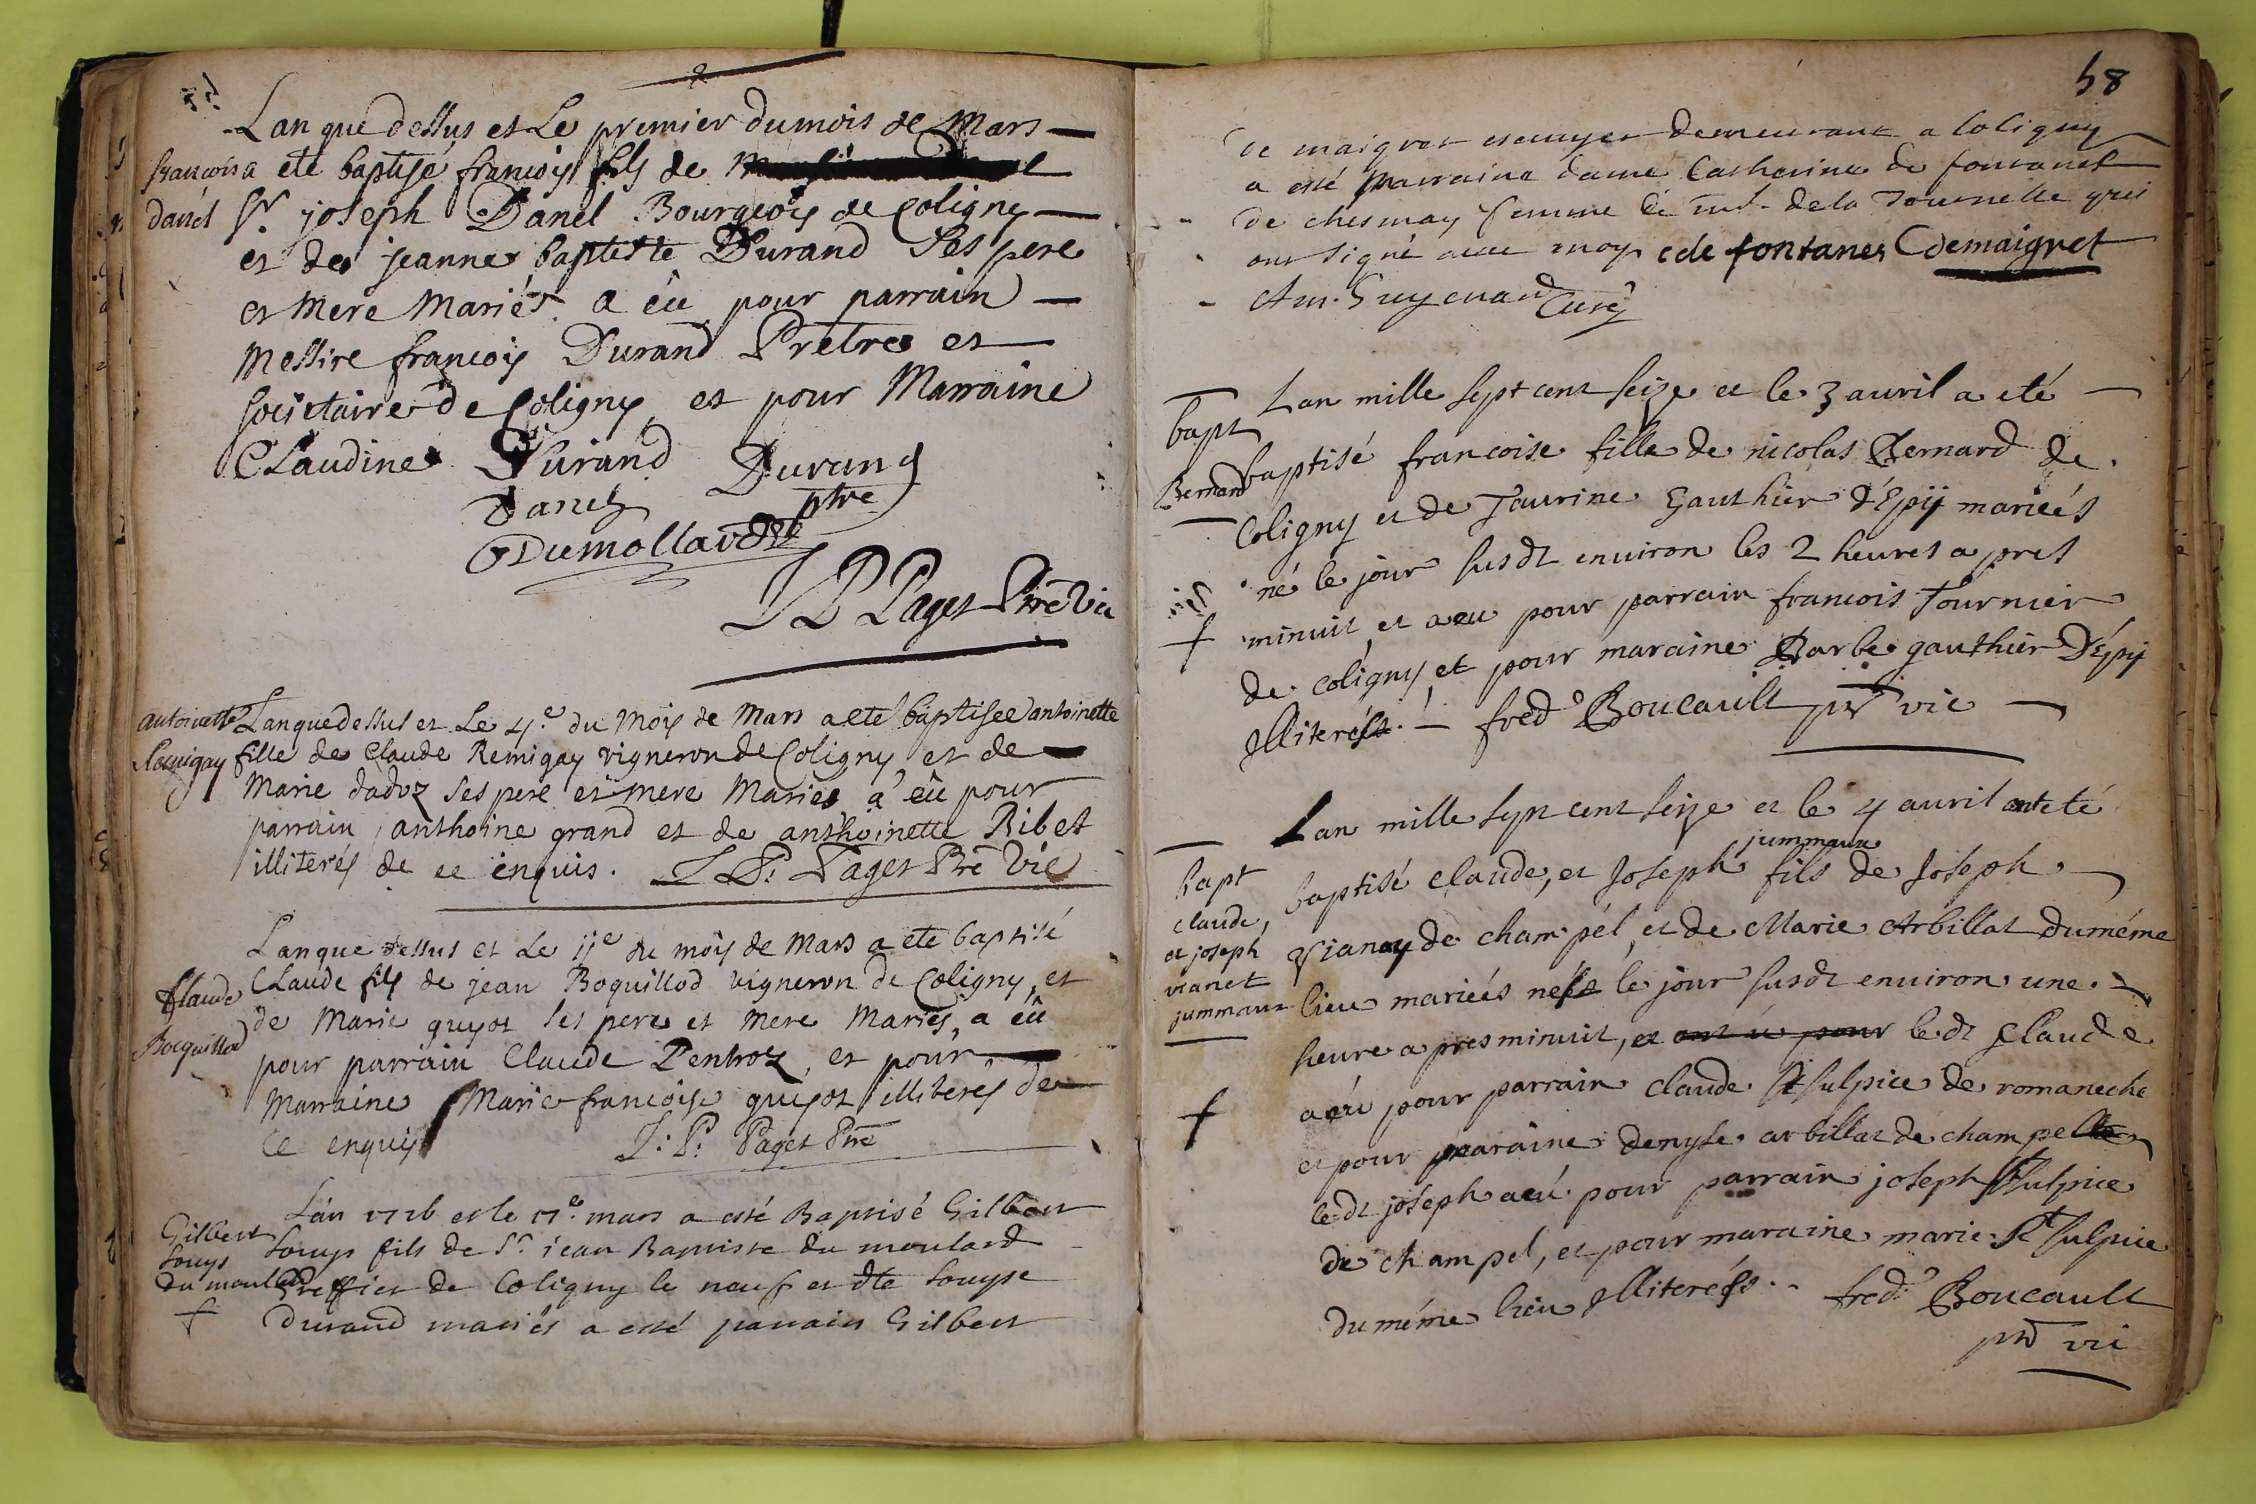 Lan que dessus et Le premier du mois de Mars
francois a ete baptisé françois fils de
danel Sr. joseph Danel Bourgeois de Coligny
et de jeanne baptiste Durand Ses pere
et Mere Mariés a êu pour parrain
Messire françois Durand Pretre et
societaire de Coligny et pour Marraine
CLaudine Durand Durand
Danel ptre
Dumollard
J P Paget Ptre Vic
antoinette Lan que dessus et Le 4e. du Mois de Mars a eté baptisee antoinette
Remigay fille de Claude Remigay vigneron de Coligny et de
Marie dadoz ses pere et mere Mariés a êu pour
parrain anthoine grand et de anthoinette Ribet
illiterés de ce enquis. J P. Paget Pre Vic
Lan que dessus et Le 11e du mois de Mars a ete baptisé
Claude CLaude fils de jean Boquillod vigneron de Coligny et
Boquillod de Marie guyot ses pere et mere Mariés, a êu
pour parrain Claude Pentroz, et pour
Marraine Marie francoise guyot illiterés de
ce enquis J: P: Paget Ptre
Lan 1716 et le 17e. mars a esté Baptisé Gilbert
Gilbert Louys Louys fils de Sr. jean Baptiste du moulard
du moulard Greffier de Coligny le neuf et dlle Louyse
Durand mariés a esté parrain Gilbert
58
de maigret escuyer demeurant a Coligny
a esté Marraine dame Catherine de fontanet
de chesmay femme de mr. de la Tournelle qui
ont signé avec moy c de fontanes C demaigret
Am. Guyenard Curé
Lan mille sept cent seize et le 3 avril a eté
bapt
Bernard baptisé francoise fille de nicolas Bernard de
Coligny et de Taurine Gauthier d'Epÿ mariés
né le jour susdt environ les 2 heures apres
minuit et a eu pour parrain francois Tournier
de coligny et pour maraine Barbe gauthier D'épÿ
Illiterés. fred Boucault ptr vic
Lan mille sept cent seize et le 4 avril ont eté
jummaux
bapt baptisé claude, et Joseph fils de Joseph
claude, et joseph Vianay de champél, et de Marie Arbillat du méme
vianet jummaux lieu mariés nés le jour susdt environ une
heure apres minuit, et ont u pour ledt Claude
a eu pour parrain claude St sulpice de romaneche
et pour maraine denyse arbillat de champel
ledt joseph a eu pour parrain joseph St sulpice
de champel, et pour maraine marie St sulpice
du méme lieu Illiterés. fred. Boucault
ptr vic